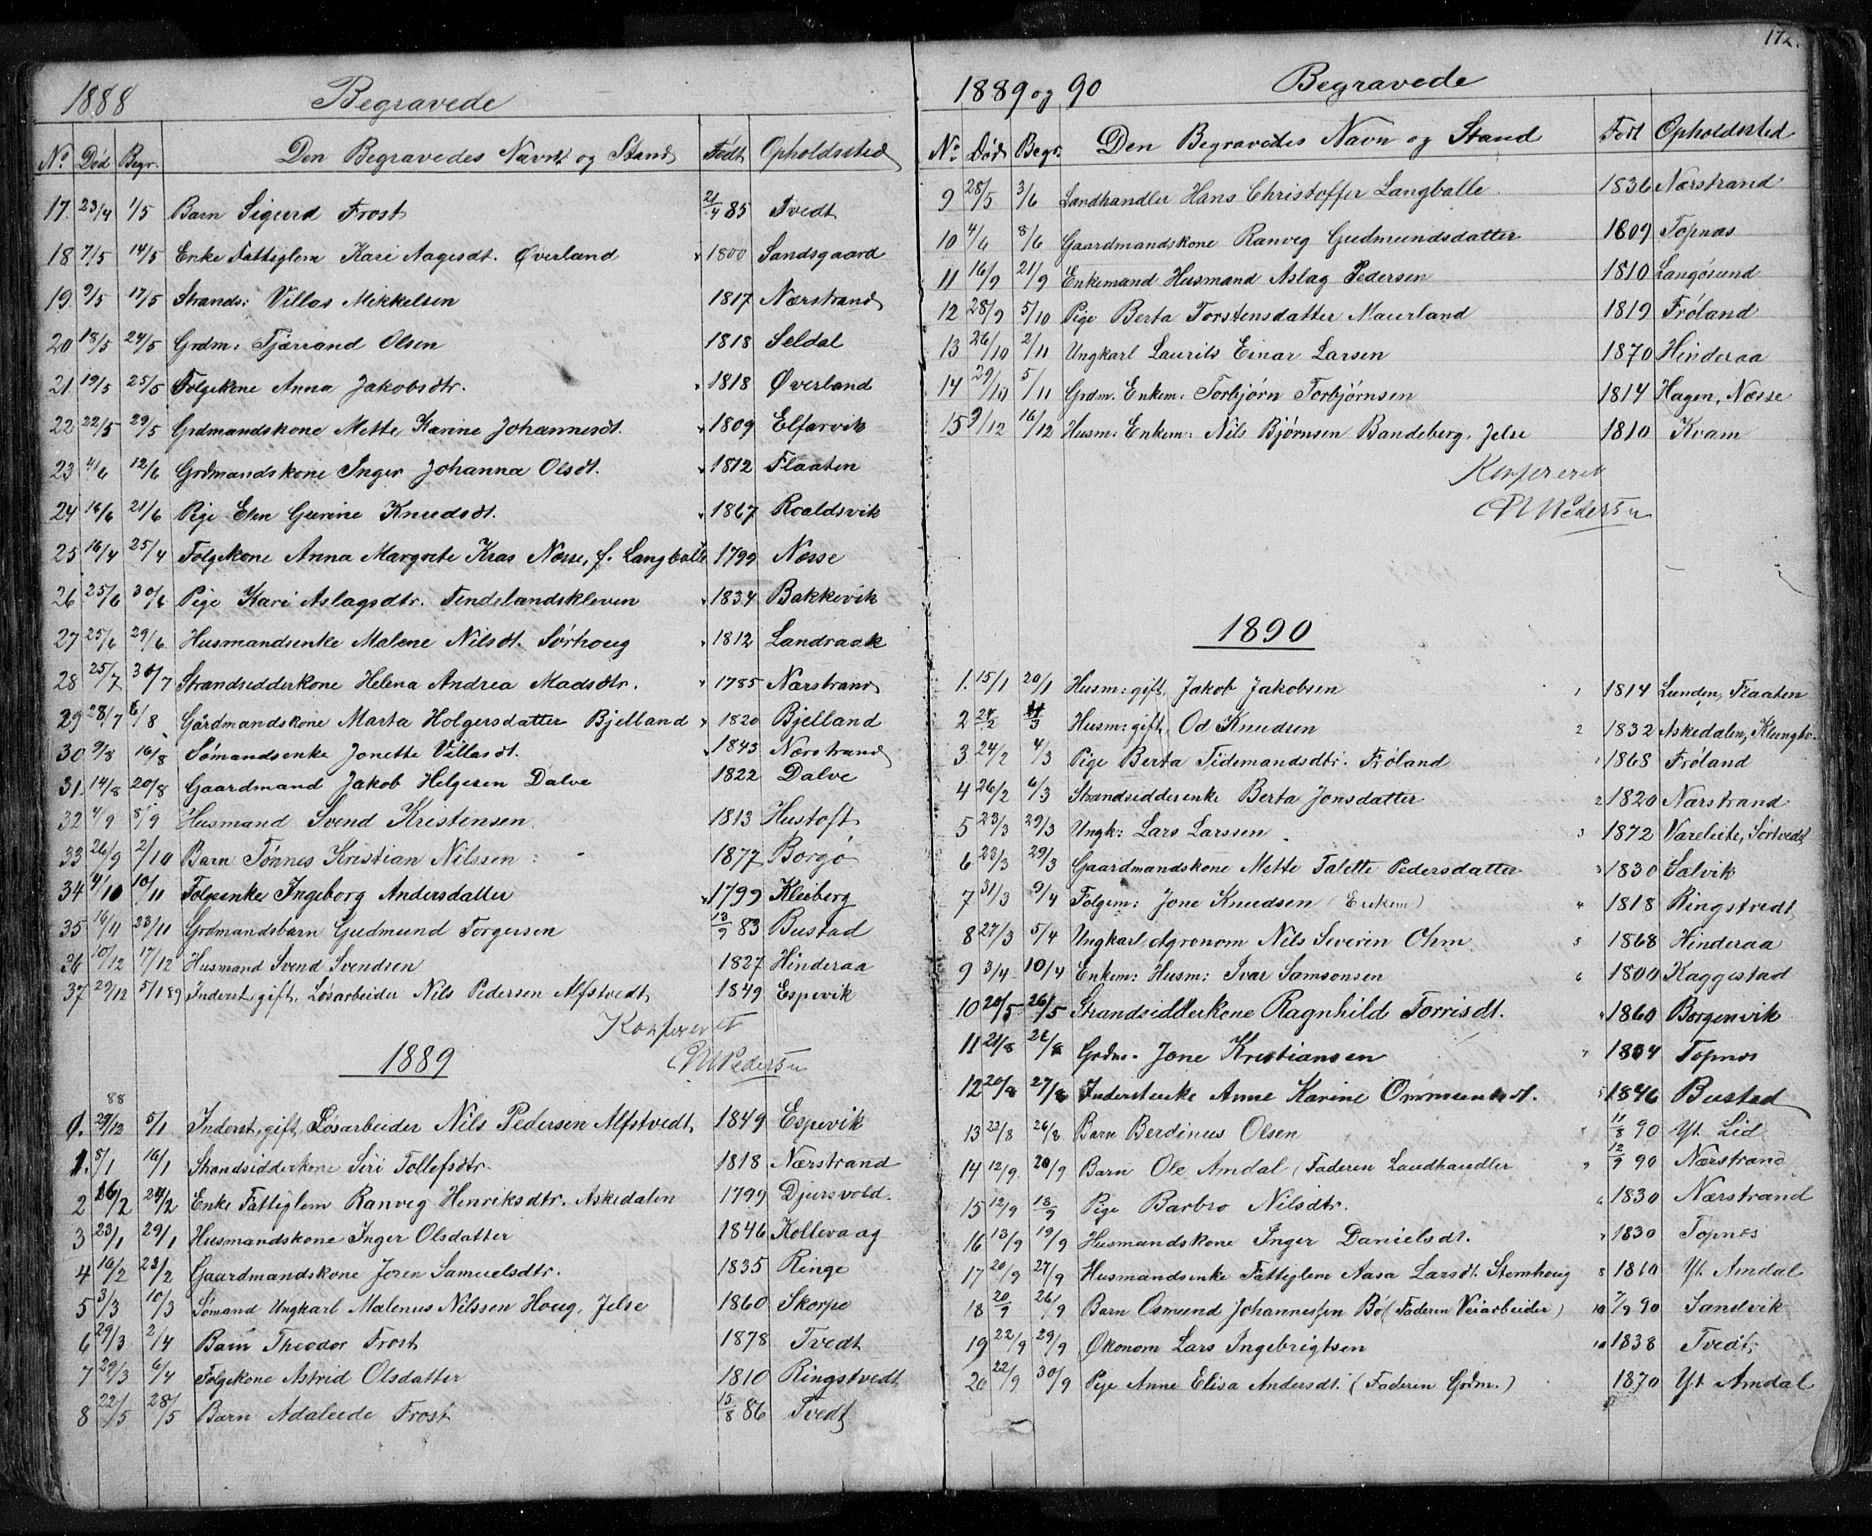 1888 Begravede
No Død Begr. Den Begravedes Navn og Stand Født Opholdssted
17. 23/4 1/5 Barn Sigurd Frost 21/4 85 Tvedt
18 7/5 14/5 Enke Fattiglem Kari Aagesdt. Øverland 1800 Sandsgaard
19. 9/5 17/5 Strands: Villas Mikkelsen 1817 Nærstrand
20 18/5 24/5 Grdm: Tjærand Olsen 1818 Seldal
21. 19/5 25/5 Folgekone Anna Jakobsdtr. 1818 Øverland
22 22/5 29/5 Grdmandskone Mette Karine Johannesdt. 1809 Elfarvik
23 4/6 12/6 Grdmandskone Inger Johanna Olsdt. 1812 Flaaten
24 16/6 21/6 Pige Elen Gurine Knudsdt. 1867 Roaldsvik
25 16/4 25/4 Folgekone Anna Margrete Kras Næsse, f. Langballe 1799 Næsse
26 25/6 30/6 Pige Kari Aslagsdtr. Tendelandskleven 1834 Bakkevik
27 25/6 29/6 Husmandsenke Malene Nilsdt. Sørhoug 1812 Landraak
28 25/7 30/7 Strandsidderkone Helena Andrea Madsdtr. 1785 Nærstrand
29 28/7 6/8 Gårdmandskone Marta Holgersdatter Bjelland 1820 Bjelland
30 9/8 16/8 Sømandsenke Jonette Villasdt. 1843 Nærstrand
31. 14/8 20/8 Gaardmand Jakob Helgesen Dalve 1822 Dalve
32 4/9 8/9 Husmand Svend Kristensen 1813 Hustoft
33 26/9 2/10 Barn Tønnes Kristian Nilssen 1877 Borgø
34 4/10 10/11 Folgeenke Ingeborg Andersdatter 1799 Kleiberg
35 16/11 23/11 Grdmandsbarn Gudmund Torgersen 13/9 83 Bustad
36 10/12 17/12 Husmand Svend Svendsen 1827 Hinderaa
37 29/12 5/1 89 Inderst, gift, Løsarbeider Nils Pedersen Alfstvedt 1849 Espevik
Konfereret
1889
88
0. 29/12 5/1 Inderst, gift, Løsarbeider Nils Pedersen Alfstvedt 1849 Espevik
1. 8/1 16/1 Strandsidderkone Siri Tollefsdtr. 1818 Nærstrand
2 16/2 24/2 Enke Fattiglem Ranveg Henriksdtr. Askedalen 1799 Djursvold.
3 23/1 29/1 Husmandskone Inger Olsdatter 1846 Kollevaag
4 16/2 23/2 Gaardmandskone Joren Samuelsdtr. 1835 Ringe
5 3/3 10/3 Sømand Ungkarl Malenus Nilssen Houg, Jelse 1860 Skorpe
6 29/3 2/4 Barn Theodor Frost 1878 Tvedt
7 29/3 6/4 Folgekone Astrid Olsdatter 1810 Ringstvedt
8 22/5 28/5 Barn Adaleide Frost 15/8 86 Tvedt
172.
1889 og 90 Begravede
No Død Begr. Den Begravedes Navn og Stand Født Opholdssted
9 28/5 3/6 Landhandler Hans Christoffer Langballe 1836 Nærstrand
10 4/6 8/6 Gaardmandskone Ranveg Gudmundsdatter 1809 Topnæs
11 16/9 21/9 Enkemand Husmand Aslag Pedersen 1810 Langøsund
12 28/9 5/10 Pige Berta Torstensdatter Maurland 1819 Frøland
13 26/10 2/11 Ungkarl Laurits Einar Larsen 1870 Hinderaa
14 29/10 5/11 Grdm. Enkem: Torbjørn Torbjørnsen 1814 Hagen, Næsse
15 9/12 16/12 Husm: Enkem: Nils Bjørnsen Bandeberg, Jelse 1810 Kvam
Konfereret
1890
1. 15/1 20/1 Husm: gift, Jakob Jakobsen 1814 Lunden, Flaaten
2 24/2 4/3 Husm: gift, Od Knudsen 1832 Askedalen,
3. 24/2 4/3 Pige Berta Tidemandsdtr. Frøland 1868 Frøland
4 26/2 6/3 Strandsidderenke Berta Jonsdatter 1820 Nærstrand
5 23/3 29/3 Ungk: Lars Larssen 1872 Vareliite, Sørtvedt
6 23/3 29/3 Gaardmandskone Mette Talette Pedersdatter 1830 Salvik
7 31/3 9/4 Folgem: Jone Knudsen (Enkem) 1818 Ringstvedt
8 27/3 5/4 Ungkarl, Agronom Nils Severin Ohm 1868 Hinderaa
9 3/4 10/4 Enkem: Husm: Ivar Samsonsen 1800 Kaggestad
10 20/5 26/5 Strandsidderkone Ragnhild Torrisdt. 1860 Borgenvik
11 21/8 26/8 Grdm. Jone Kristiansen 1804 Topnæs
12 20/8 27/8 Inderstenke Anne Karine Ommundsdt. 1846 Bustad
13 22/8 26/8 Barn Berdinus Olsen 11/8 90 Yt. Lid
14 12/9 20/9 Barn Ole Amdal (Faderen Landhandler 12/9 90 Nærstrand
15 12/9 18/9 Pige Barbro Nilsdtr. 1830 Nærstrand
16 13/9 19/9 Husmandskone Inger Danielsdt. 1830 Topnæs
17 20/9 27/9 Husmandsenke Fattiglem Aasa Larsdt. Stemhoug 1810 Yt. Amdal
18 20/9 26/9 Barn Osmund Johannessen Bø (Faderen Veiarbeider) 7/9 90 Sandvik
19 22/9 29/9 Økonom Lars Ingebrigtsen 1838 Tvedt
20 22/9 30/9 Pige Anne Elisa Andersdt. (Faderen Grdm.) 1870 Yt. Amdal